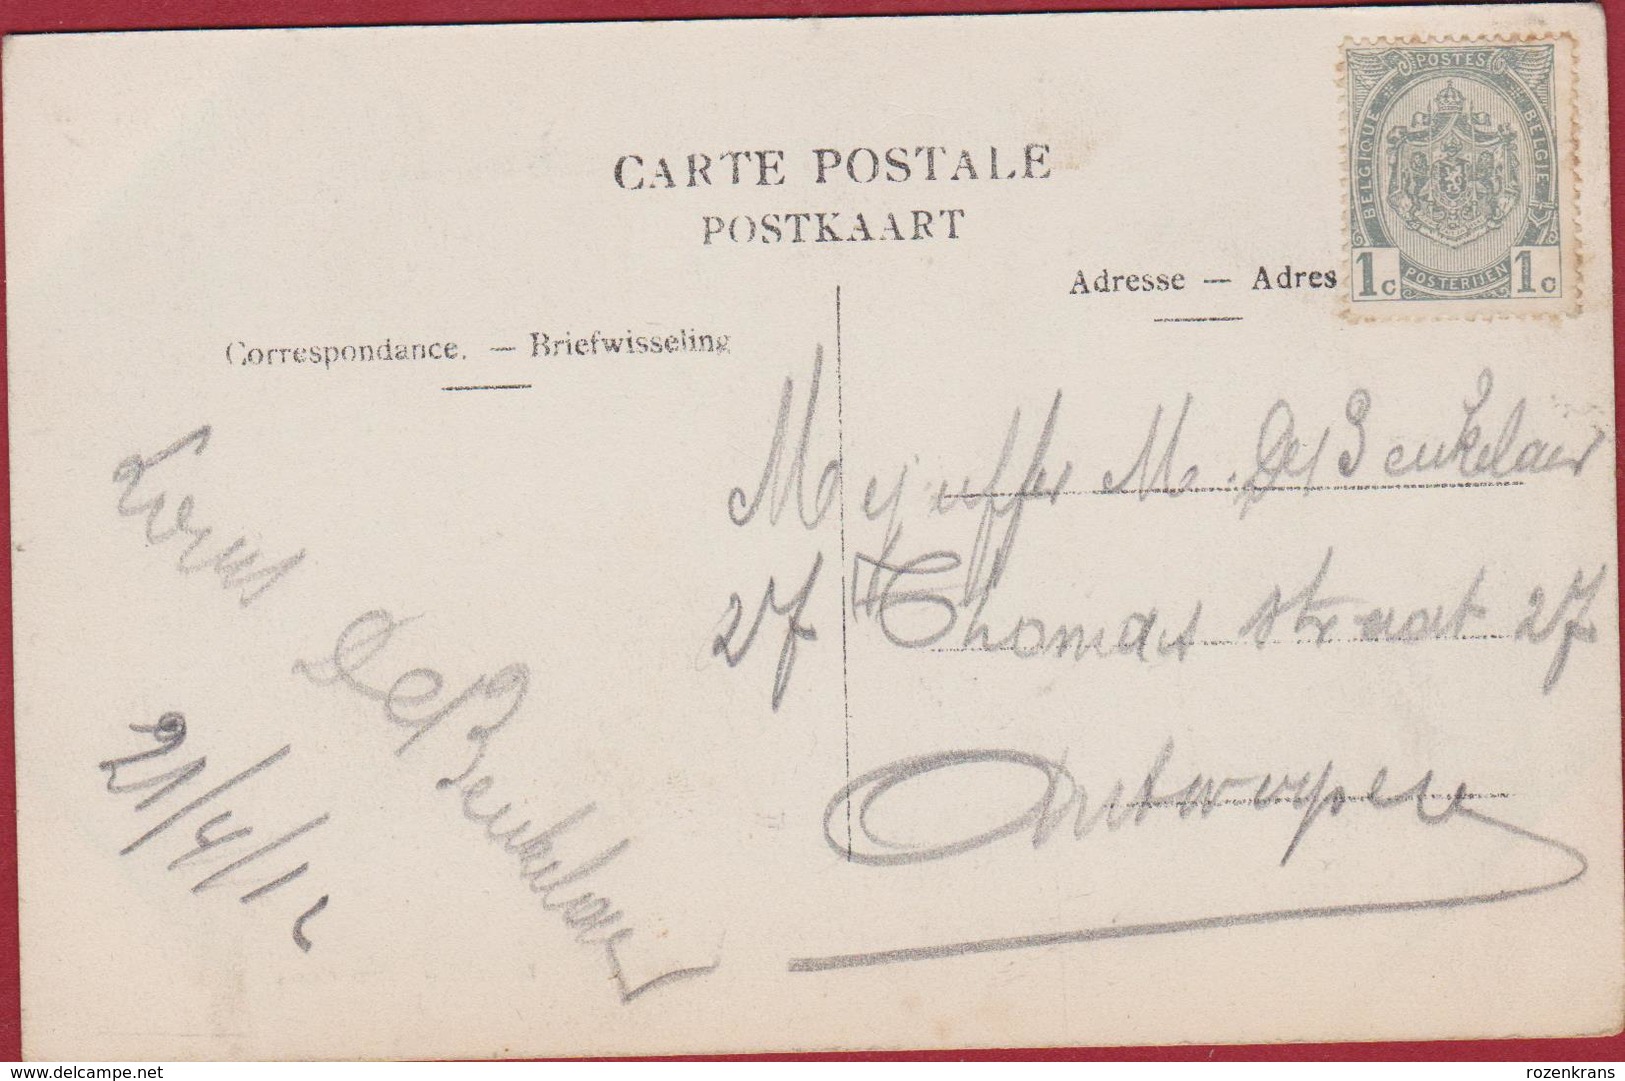 CARTE POSTALE
POSTKAART
Correspondance. — Briefwisseling
Adresse — Adres
POSTES
BELGIQUE
BELGIE
1c POSTERIJEN 1c
De Beukelaer
21/4/12
Mejuffer M. De Beukelaer
27 Thomas straat 27
Antwerpen
delcampe.net
rozenkrans